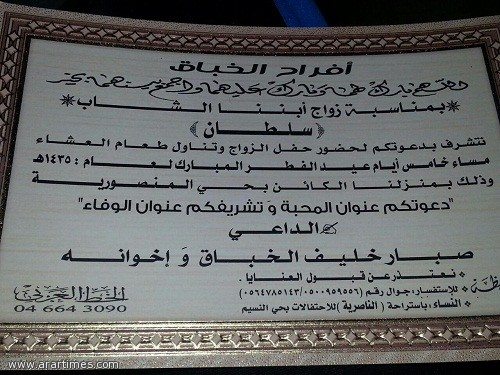 أفراح الخباق
اللهم بارك لهما وبارك عليهما واجمع بينهما بخير
بمناسبة زواج أبننا الشاب
﴿ سلطان ﴾
نتشرف بدعوتكم لحضور حفل الزواج وتناول طعام العشاء
مساء خامس أيام عيد الفطر المبارك لعام : ١٤٣٥هـ
وذلك بمنزلنا الكائن بحي المنصورية
"دعوتكم عنوان المحبة و تشريفكم عنوان الوفاء"
الداعي
صبار خليف الخباق و إخوانه
• نعتذر عن قبول العنايا .
• للإستفسار، جوال رقم (٠٥٠٠٩٥٩٥٥٦/٠٥٦٤٧٨٥١٤٣)
• النساء، بأستراحة ( الناصرية )للاحتفالات بحي النسيم
04 664 3090
www.arartimes.com